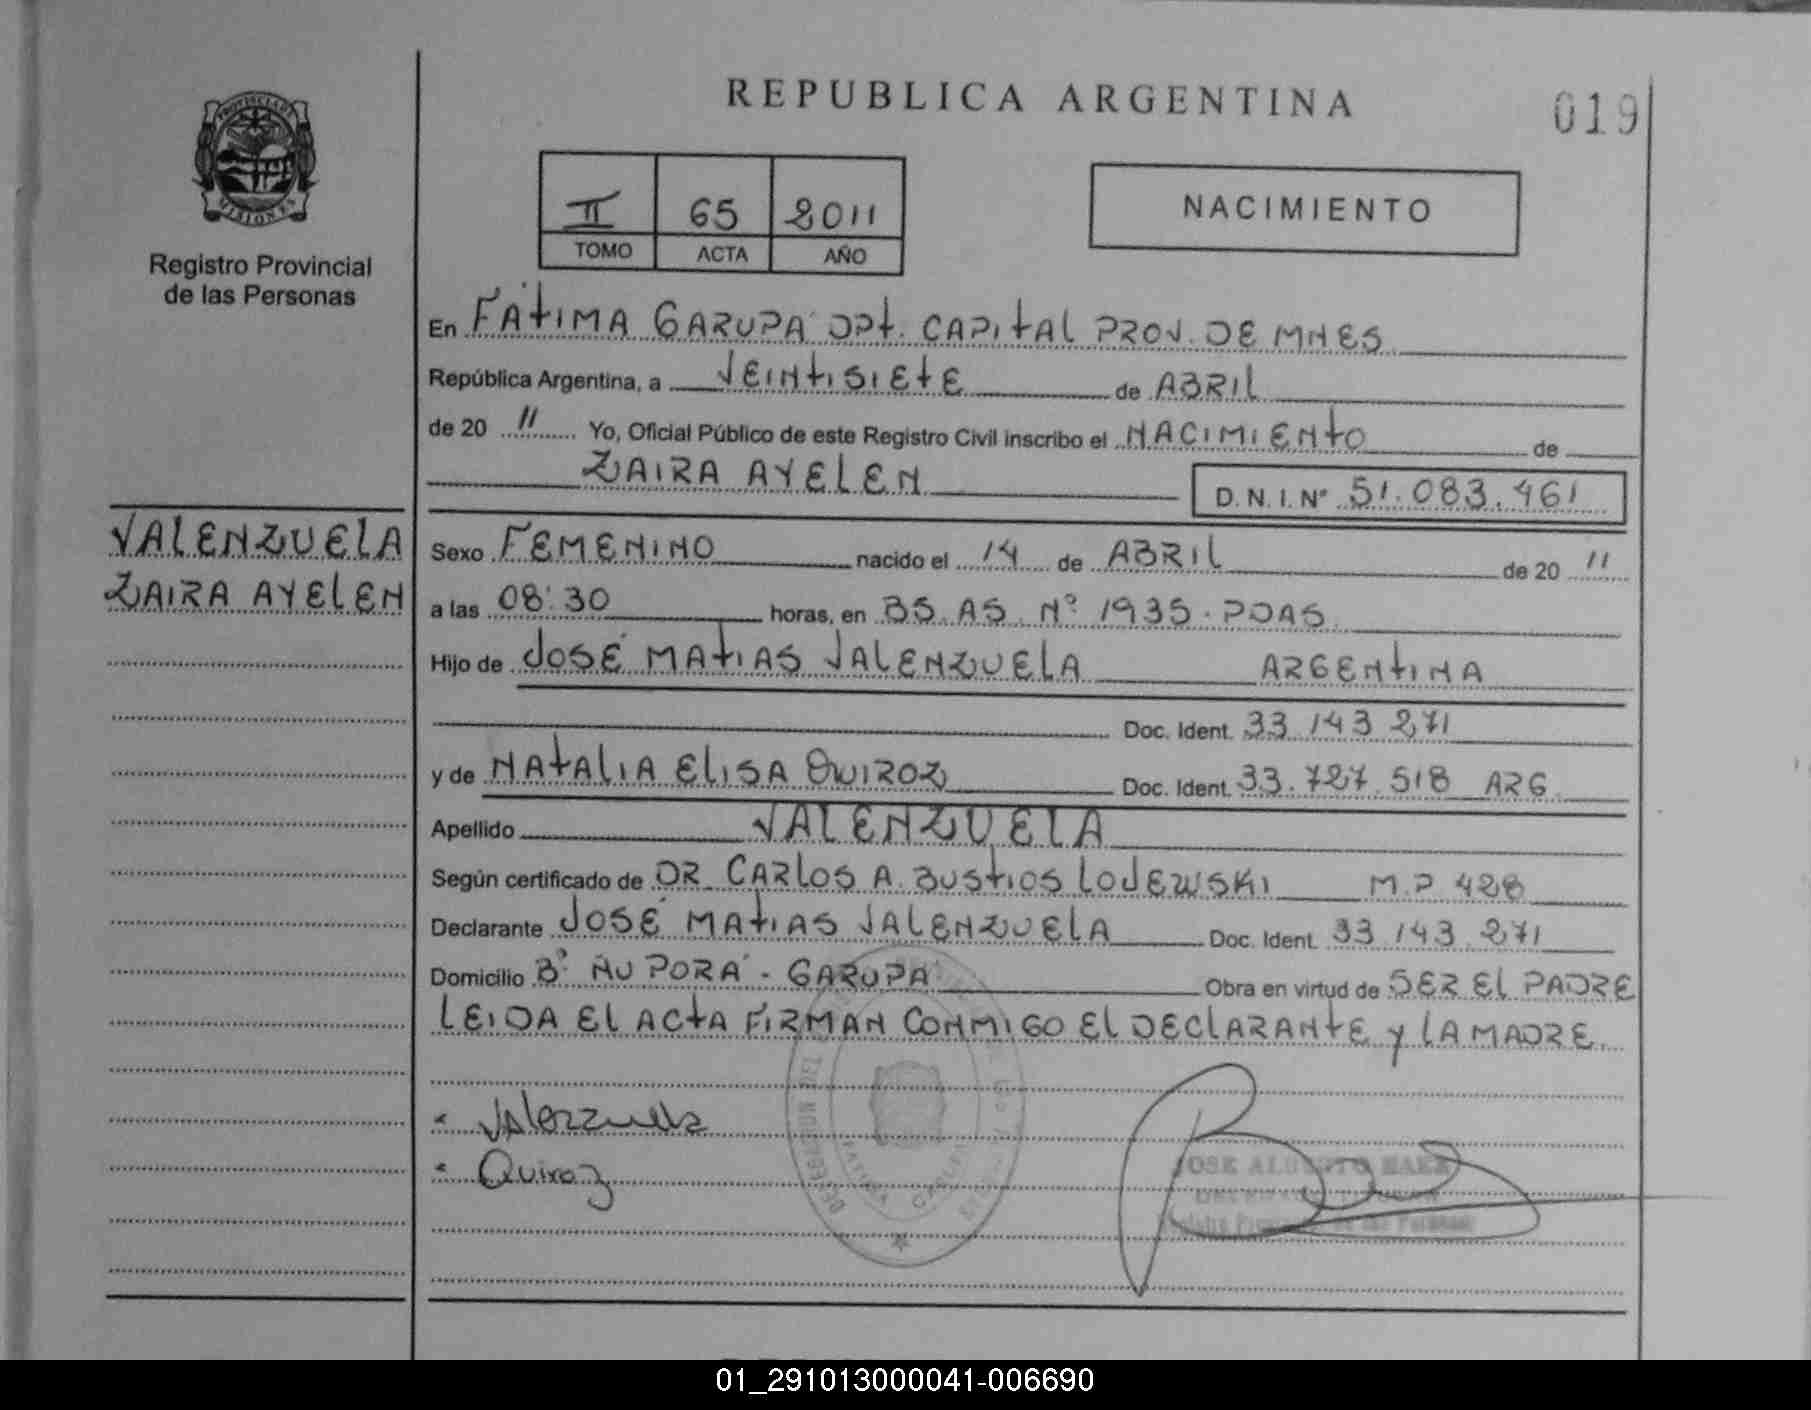 REPUBLICA ARGENTINA
019
PROVINCIA DE
MISIONES
Registro Provincial
de las Personas
II 65 2011
TOMO ACTA AÑO
NACIMIENTO
En FÁTIMA GARUPA DPT. CAPITAL PROV. DE MNES
República Argentina, a VEINTISIETE de ABRIL
de 20 11 Yo, Oficial Público de este Registro Civil inscribo el NACIMIENTO de
ZAIRA AYELEN D.N.I. Nº 51.083.461
VALENZUELA
ZAIRA AYELEN
Sexo FEMENINO nacido el 14 de ABRIL de 20 11
a las 08:30 horas, en BS. AS. Nº 1935 - PDAS
Hijo de JOSÉ MATIAS VALENZUELA ARGENTINA
Doc. Ident. 33.143.271
y de NATALIA ELISA QUIROZ Doc. Ident. 33.727.518 ARG.
Apellido VALENZUELA
Según certificado de DR. CARLOS A. BUSTIOS LODEWSKI M.P 428
Declarante JOSÉ MATIAS VALENZUELA Doc. Ident. 33.143.271
Domicilio Bº ÑU PORÁ - GARUPA Obra en virtud de SER EL PADRE
LEIDA EL ACTA FIRMAN CONMIGO EL DECLARANTE Y LA MADRE.
Valenzuela
Quiroz
JOSE ALBERTO BAEZ
01_291013000041-006690